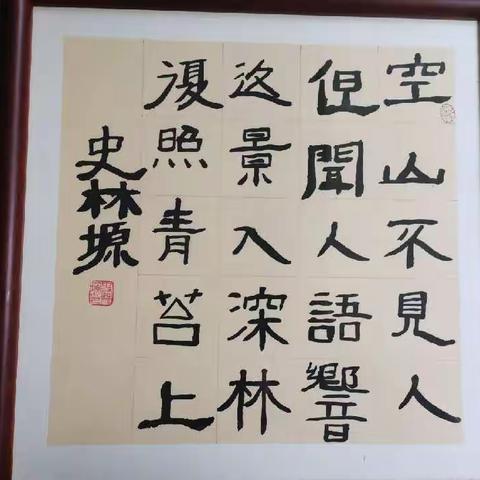 空山不見人
但聞人語響
返景入深林
復照青苔上
史林塬